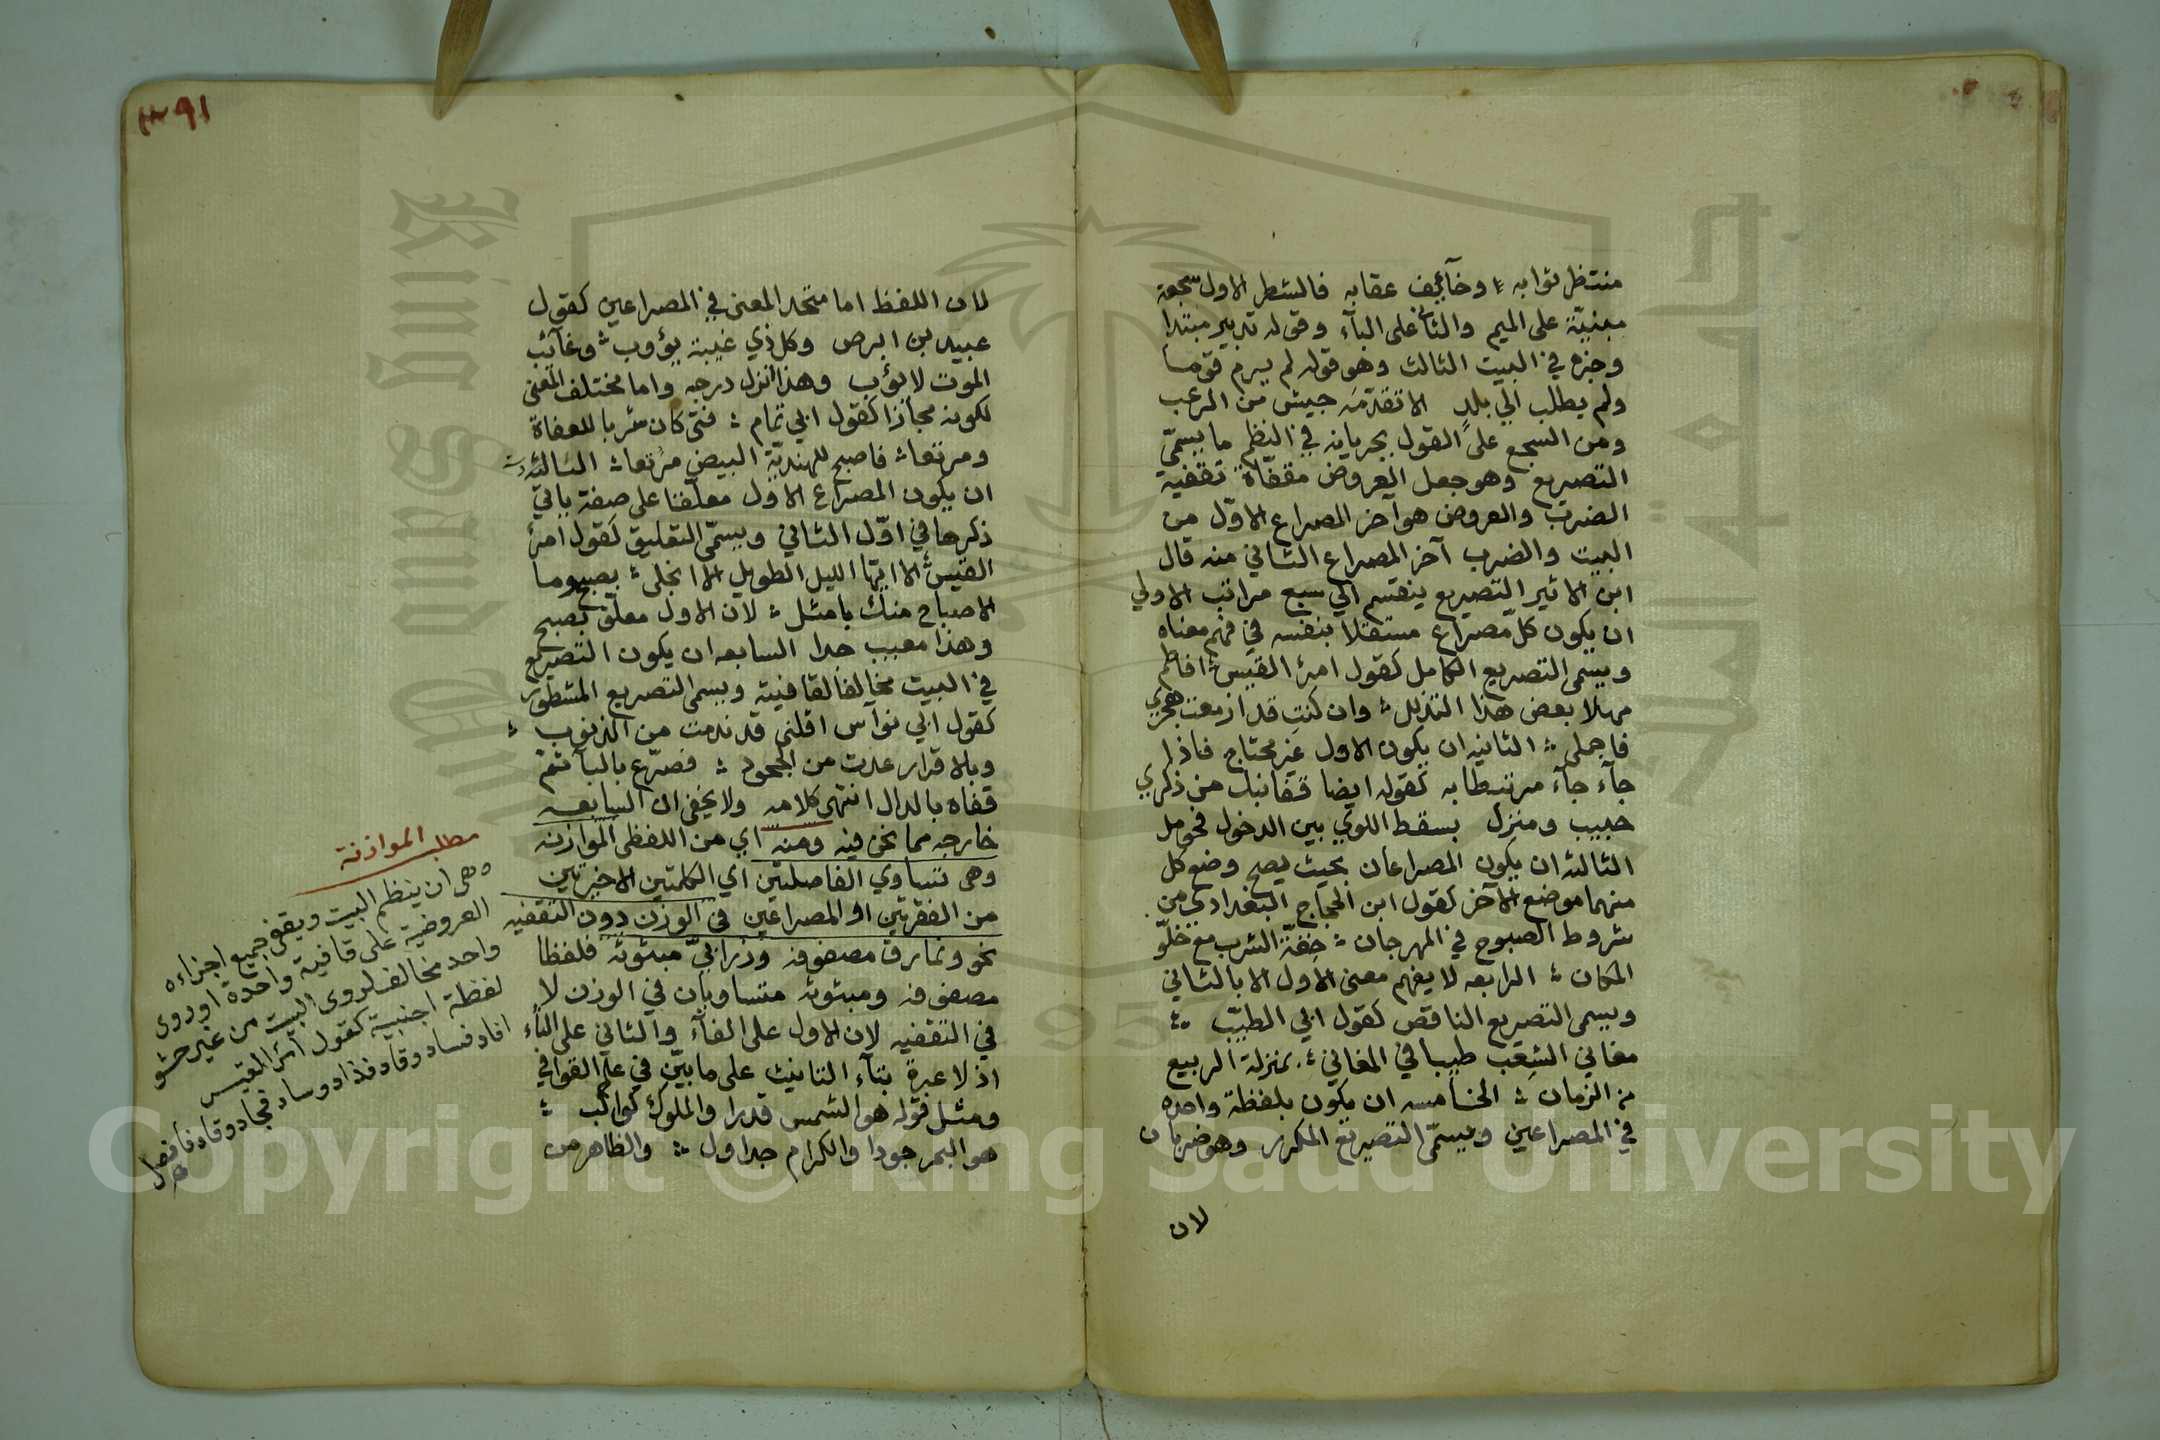 منتظر ثوابه وخآئف عقابه فالشطر الاول سجعة
مبنيّة على الميم والثاني على البآء وقوله تدبير مبتدا
وخبره في البيت الثالث وهو قوله لم يرم قوما
ولم يطلب الي بلد الا تقدّمه جيش من الرعب
ومن السجع على القول بجريانه في النظم ما يسمّي
التصريع وهو جعل العروض مقفّاة تقفية
الضرب والعروض هو آخر المصراع الاوّل من
البيت والضرب آخر المصراع الثاني منه قال
ابن الاثير التصريع ينقسم الي سبع مراتب الاولي
ان يكون كل مصراع مستقلا بنفسه في فهم معناه
ويسمى التصريع الكامل كقول امرئ القيس افاطم
مهلا بعض هذا التذلل وان كنت قد ازمعت هجري
فاجملي الثانيه ان يكون الاول غير محتاج فاذا
جآء جآء مرتبطا به كقوله ايضا قفا نبك من ذكري
حبيب ومنزل بسقط اللوي بين الدخول فحومل
الثالثه ان يكون المصراعان بحيث يصح وضع كل
منهما موضع الآخر كقول ابن الحجاج البغدادي من
شروط الصبوح في المهرجان خفة الشرب مع خلوّ
المكان الرابعه لا يفهم معنى الاول الا بالثاني
ويسمى التصريع الناقص كقول ابي الطيّب
مغاني الشعب طيبا في المغاني بمنزلة الربيع
من الزمان الخامسه ان يكون بلفظة واحده
في المصراعين ويسمّى التصريع المكرر وهو ضربان
لان
٩١
لان اللفظ اما متحد المعنى في المصراعين كقول
عبيد بن ابرص وكل ذي غيبة يؤوب وغآئب
الموت لا يؤب وهذا انزل درجه واما مختلف المعنى
لكونه مجازا كقول ابي تمام فتى كان شربا للعفاة
ومرتعا فاصبح للهنديّة البيض مرتعا السادسة
ان يكون المصراع الاول معلّقا على صفة ياتي
ذكرها في اوّل الثاني ويسمّى التعليق كقول امرئ
القيس الا ايّها الليل الطويل الا انجلى بصبح وما
الاصباح منك بامثل لان الاول معلّق بصبح
وهذا معيب جدا السابعه ان يكون التصريع
في البيت مخالفا لقافيته ويسمى التصريع المشطور
كقول ابي نوآس اقلني قد ندمت من الذنوب
وبالاقرار عدت من الجحود فصرّع بالبآ ثمّ
قفاه بالدال انتهى كلامه ولا يخفى ان السابعه
خارجه مما نحن فيه ومنه اي من اللفظي الموازنة
وهى تساوي الفاصلتين اي الكلمتين الاخيرتين
من الفقرتين او المصراعين في الوزن دون التقفيه
نحو ونمارق مصفوفه وزرابيّ مبثوثه فلفظا
مصفوفه ومبثوثه متساويان في الوزن لا
في التقفيه لان الاول على الفآء والثاني على الثآء
اذ لا عبرة بتآء التانيث على ما بيّن في علم القوافي
ومثل قوله هو الشمس قدرا والملوك كواكب
هو البحر جودا والكرام جداول والظاهر من
مطلب الموازنة
وهى ان ينظم البيت ويقفى جميع اجزاءه
العروضية على قافية واحدة او روى
واحد مخالف لروى البيت من غير حشو
لفظة اجنبية كقول امرئ القيس
افاد فساد وقاد فذاد وساد فجاد وقاد فأفضل
King Saud University
Copyright © King Saud University